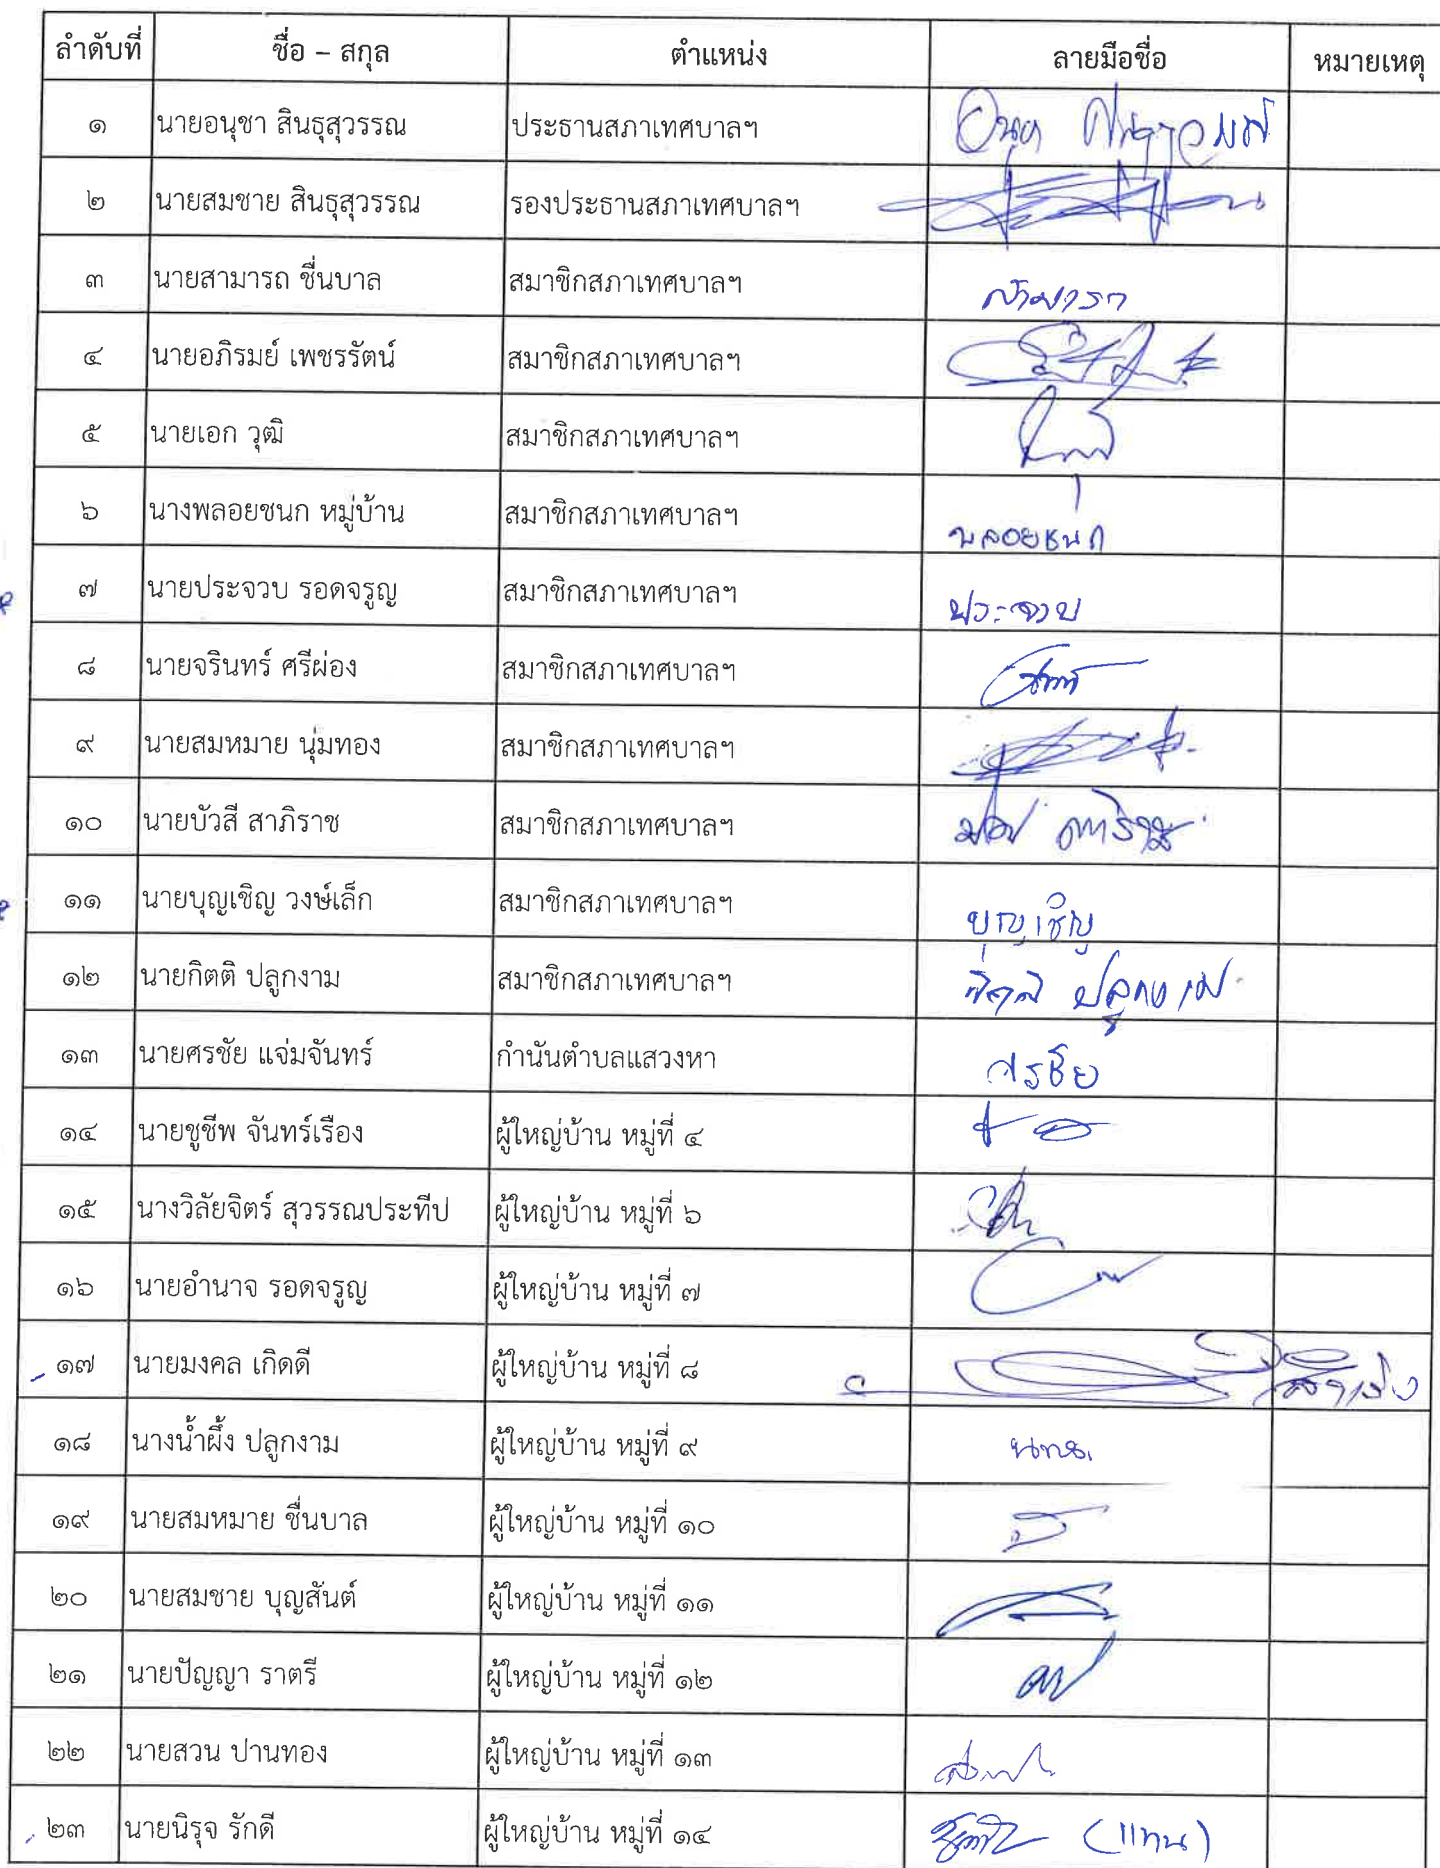 ลำดับที่ ชื่อ – สกุล ตำแหน่ง ลายมือชื่อ หมายเหตุ
๑ นายอนุชา สินธุสุวรรณ ประธานสภาเทศบาลฯ
๒ นายสมชาย สินธุสุวรรณ รองประธานสภาเทศบาลฯ
๓ นายสามารถ ชื่นบาล สมาชิกสภาเทศบาลฯ สามารถ
๔ นายอภิรมย์ เพชรรัตน์ สมาชิกสภาเทศบาลฯ
๕ นายเอก วุฒิ สมาชิกสภาเทศบาลฯ
๖ นางพลอยชนก หมู่บ้าน สมาชิกสภาเทศบาลฯ พลอยชนก
๗ นายประจวบ รอดจรูญ สมาชิกสภาเทศบาลฯ ประจวบ
๘ นายจรินทร์ ศรีผ่อง สมาชิกสภาเทศบาลฯ
๙ นายสมหมาย นุ่มทอง สมาชิกสภาเทศบาลฯ
๑๐ นายบัวสี สาภิราช สมาชิกสภาเทศบาลฯ
๑๑ นายบุญเชิญ วงษ์เล็ก สมาชิกสภาเทศบาลฯ บุญเชิญ
๑๒ นายกิตติ ปลูกงาม สมาชิกสภาเทศบาลฯ กิตติ ปลูกงาม
๑๓ นายศรชัย แจ่มจันทร์ กำนันตำบลแสวงหา ศรชัย
๑๔ นายชูชีพ จันทร์เรือง ผู้ใหญ่บ้าน หมู่ที่ ๔
๑๕ นางวิลัยจิตร์ สุวรรณประทีป ผู้ใหญ่บ้าน หมู่ที่ ๖
๑๖ นายอำนาจ รอดจรูญ ผู้ใหญ่บ้าน หมู่ที่ ๗
๑๗ นายมงคล เกิดดี ผู้ใหญ่บ้าน หมู่ที่ ๘
๑๘ นางน้ำผึ้ง ปลูกงาม ผู้ใหญ่บ้าน หมู่ที่ ๙
๑๙ นายสมหมาย ชื่นบาล ผู้ใหญ่บ้าน หมู่ที่ ๑๐
๒๐ นายสมชาย บุญสันต์ ผู้ใหญ่บ้าน หมู่ที่ ๑๑
๒๑ นายปัญญา ราตรี ผู้ใหญ่บ้าน หมู่ที่ ๑๒
๒๒ นายสวน ปานทอง ผู้ใหญ่บ้าน หมู่ที่ ๑๓
๒๓ นายนิรุจ รักดี ผู้ใหญ่บ้าน หมู่ที่ ๑๔ (แทน)